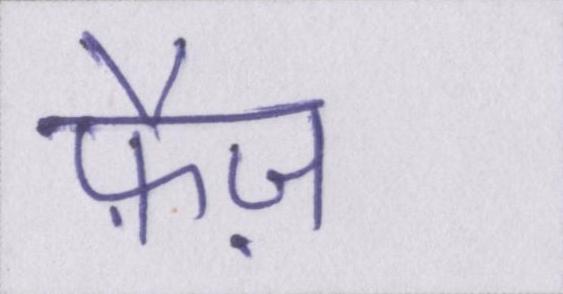 फ़ैज़